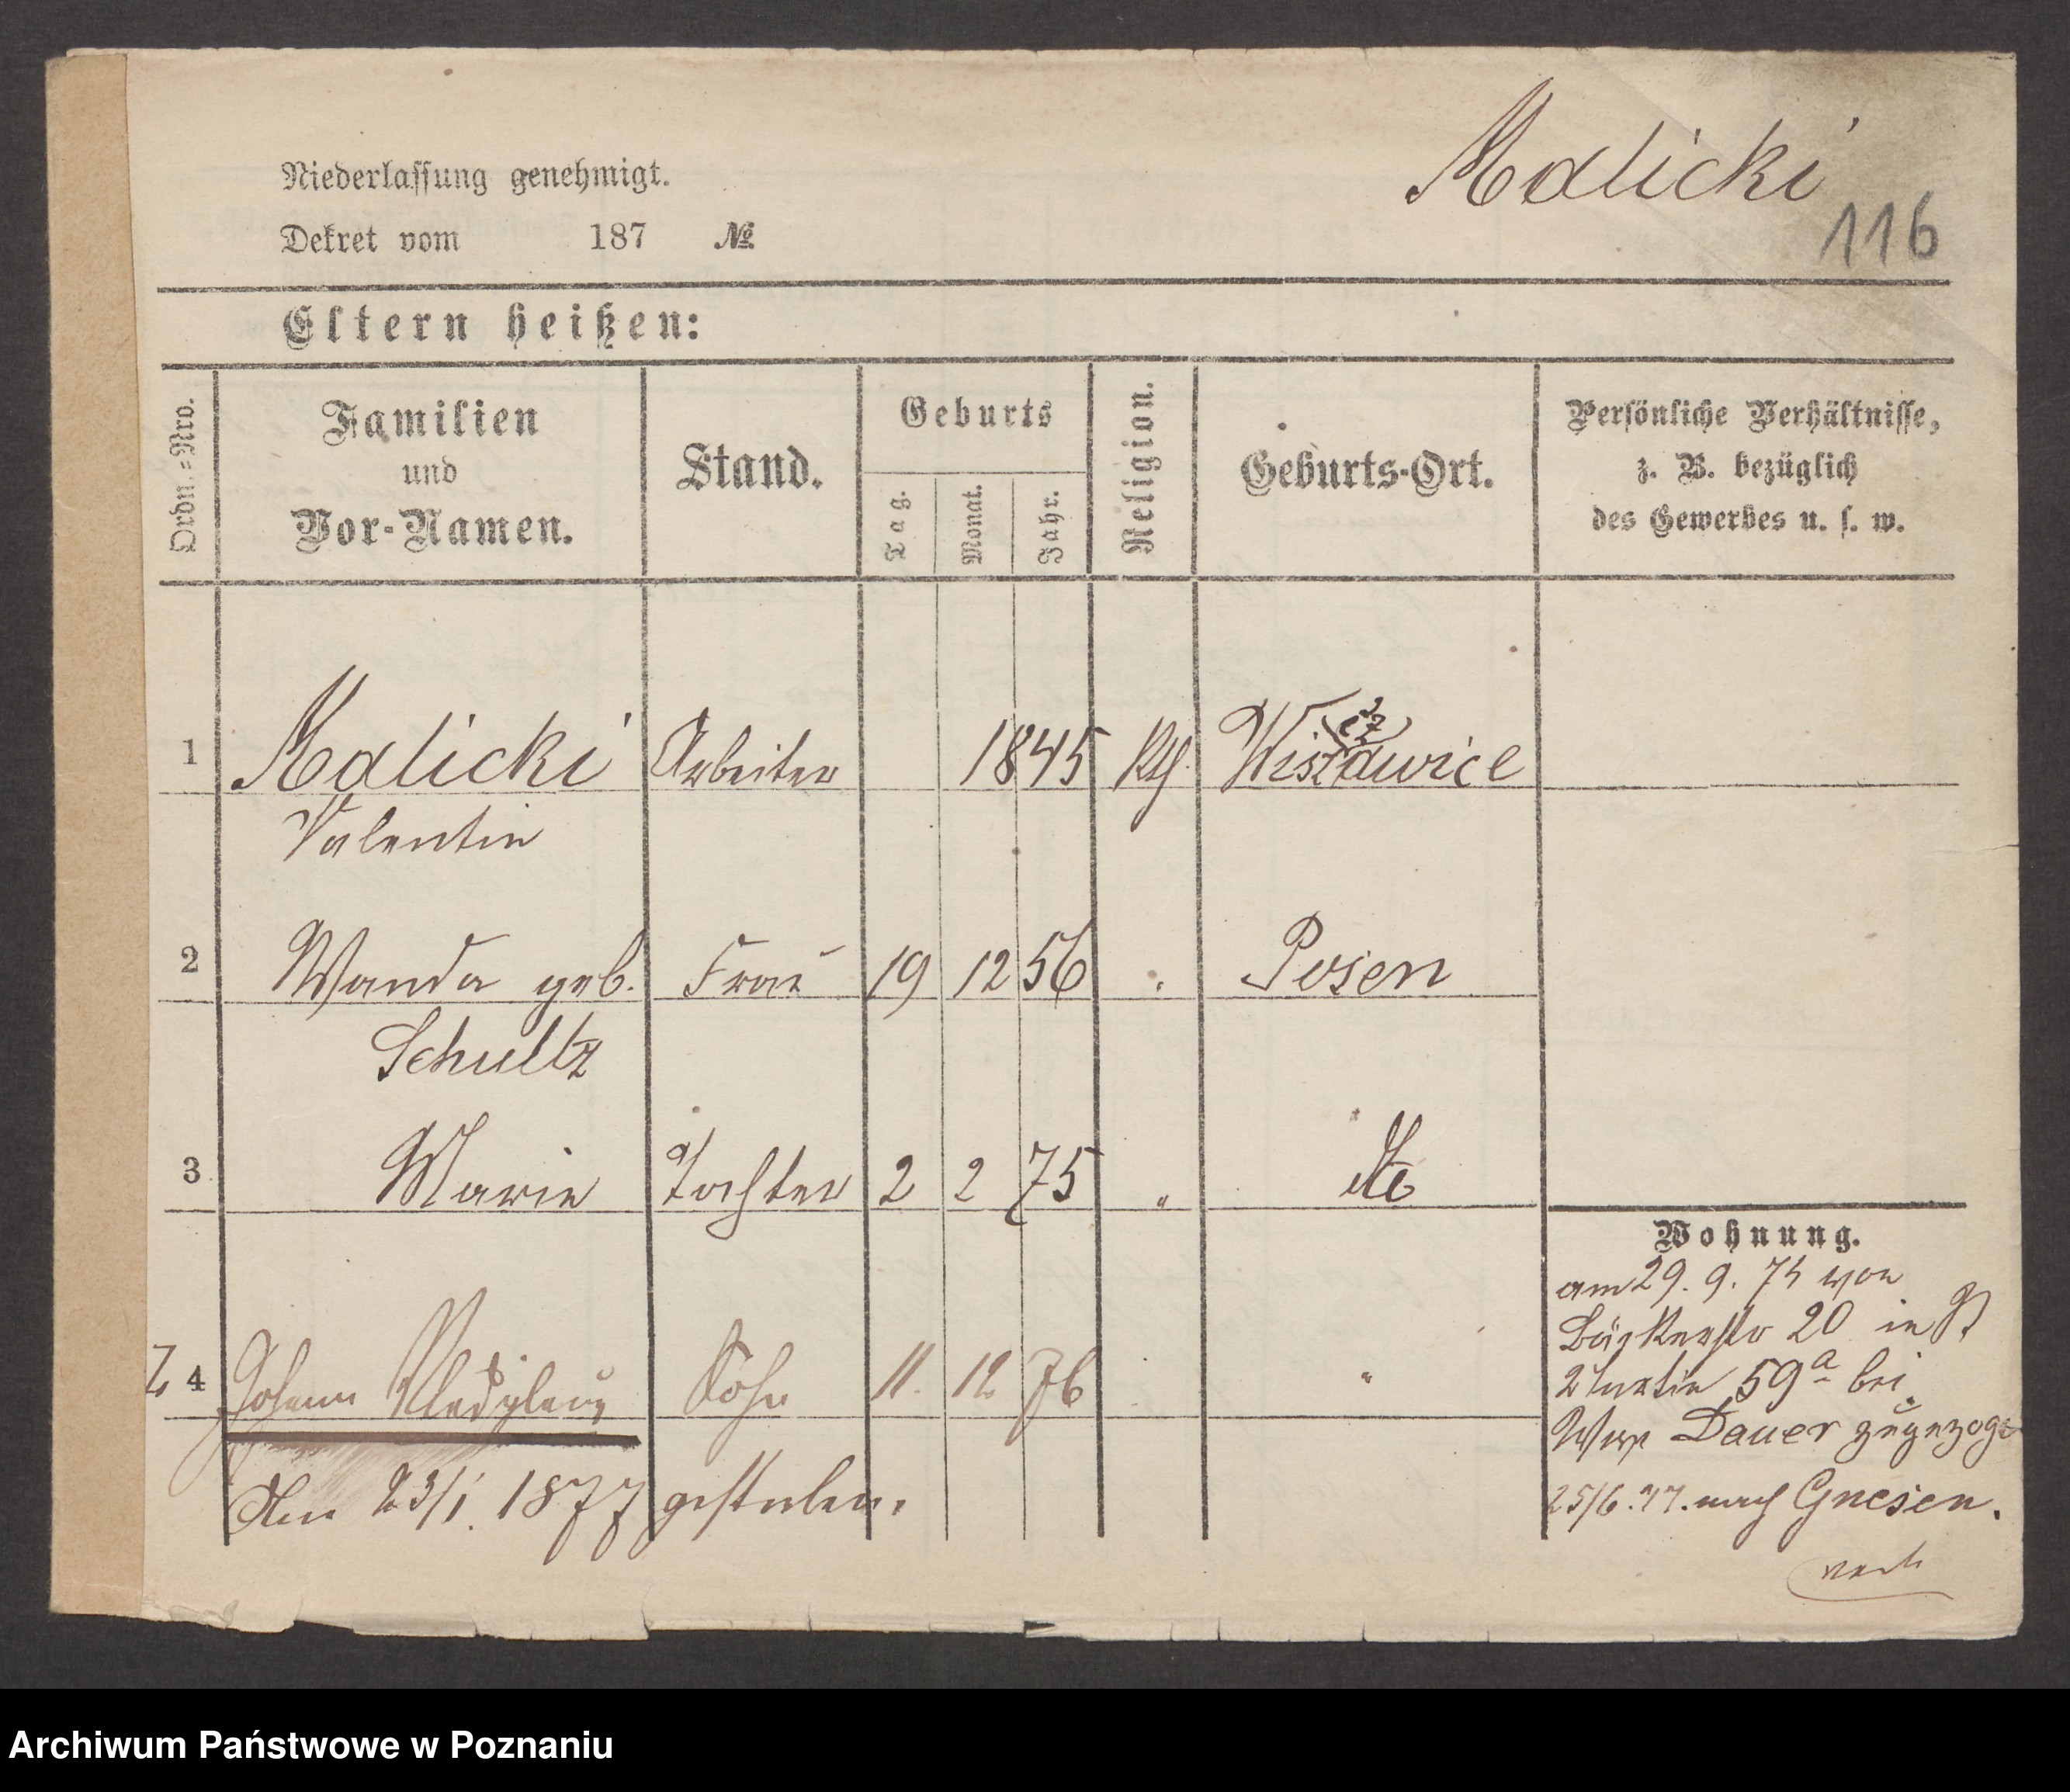 Malicki
116
Niederlassung genehmigt.
Dekret vom 187 №
Eltern heißen:
Ordn.=Nro.
Familien
und
Vor-Namen.
Stand.
Geburts
Tag.
Monat.
Jahr.
Religion.
Geburts-Ort.
Persönliche Verhältnisse,
z. B. bezüglich
des Gewerbes u. s. w.
1 Malicki Arbeiter 1845 Kth.
Valentin
2 Wanda geb. Frau 19 12 56 " Posen
Schultz
3 Marie Tochter 2 2 75 " dto
Wohnung.
am 29. 9. 75 von
Bäckerstr 20 in
59a bei
Dauer zugezogen
4 Johann Sohn 11. 12 76 "
Am 23/1. 1877 gestorben.
25/6. 77. nach Gnesen.